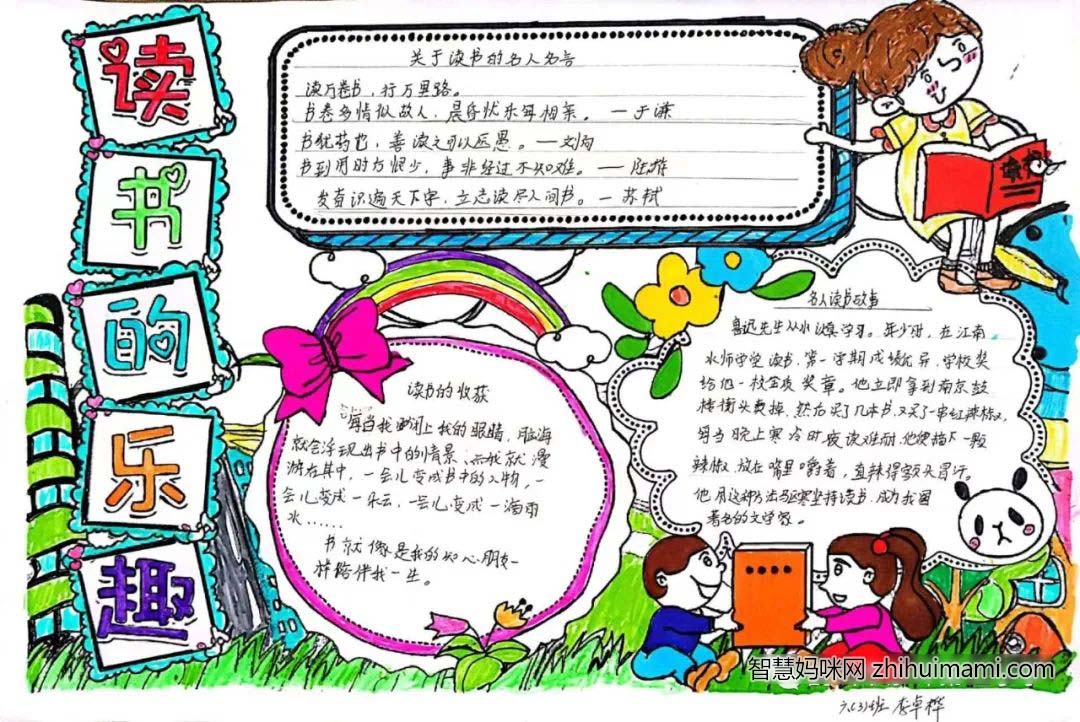 读
书
的
乐
趣
关于读书的名人名言
读万卷书，行万里路。
书卷多情似故人，晨昏忧乐每相亲。—于谦
书犹药也，善读之可以医愚。—刘向
书到用时方恨少，事非经过不知难。—陆游
发奋识遍天下字，立志读尽人间书。—苏轼
读书的收获
每当我闭上我的眼睛，脑海
就会浮现出书中的情景，而我就漫
游在其中，一会儿变成书中的人物，一
会儿变成一朵云，一会儿变成一滴雨
水……
书就像是我的知心朋友一
样陪伴我一生。
名人读书故事
鲁迅先生从小认真学习。年少时，在江南
水师学堂读书，第一学期成绩优异，学校奖
给他一枚金质奖章。他立即拿到南京鼓
楼街头卖掉，然后买了几本书，又买了一串红辣椒，
每当晚上寒冷时夜读难耐，他便摘下一颗
辣椒，放在嘴里嚼着，直辣得额头冒汗。
他用这种办法驱寒坚持读书，成为我国
著名的文学家。
读书
智慧妈咪网 zhihuimami.com
六(3)班 李卓桦